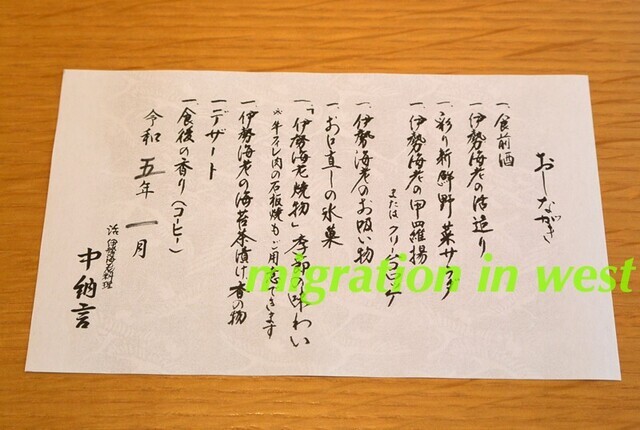 おしながき
一、食前酒
一、伊勢海老の活造り
一、彩り新鮮野菜サラダ
一、伊勢海老の甲羅揚
またはクリームコロッケ
一、伊勢海老のお吸い物
一、お口直しの氷菓
一、「伊勢海老焼物」季節の味わい
※牛フィレ肉の石板焼もご用意できます
一、伊勢海老の海苔茶漬け、香の物
一、デザート
一、食後の香り（コーヒー）
令和五年一月
活伊勢海老料理
中納言
migration in west